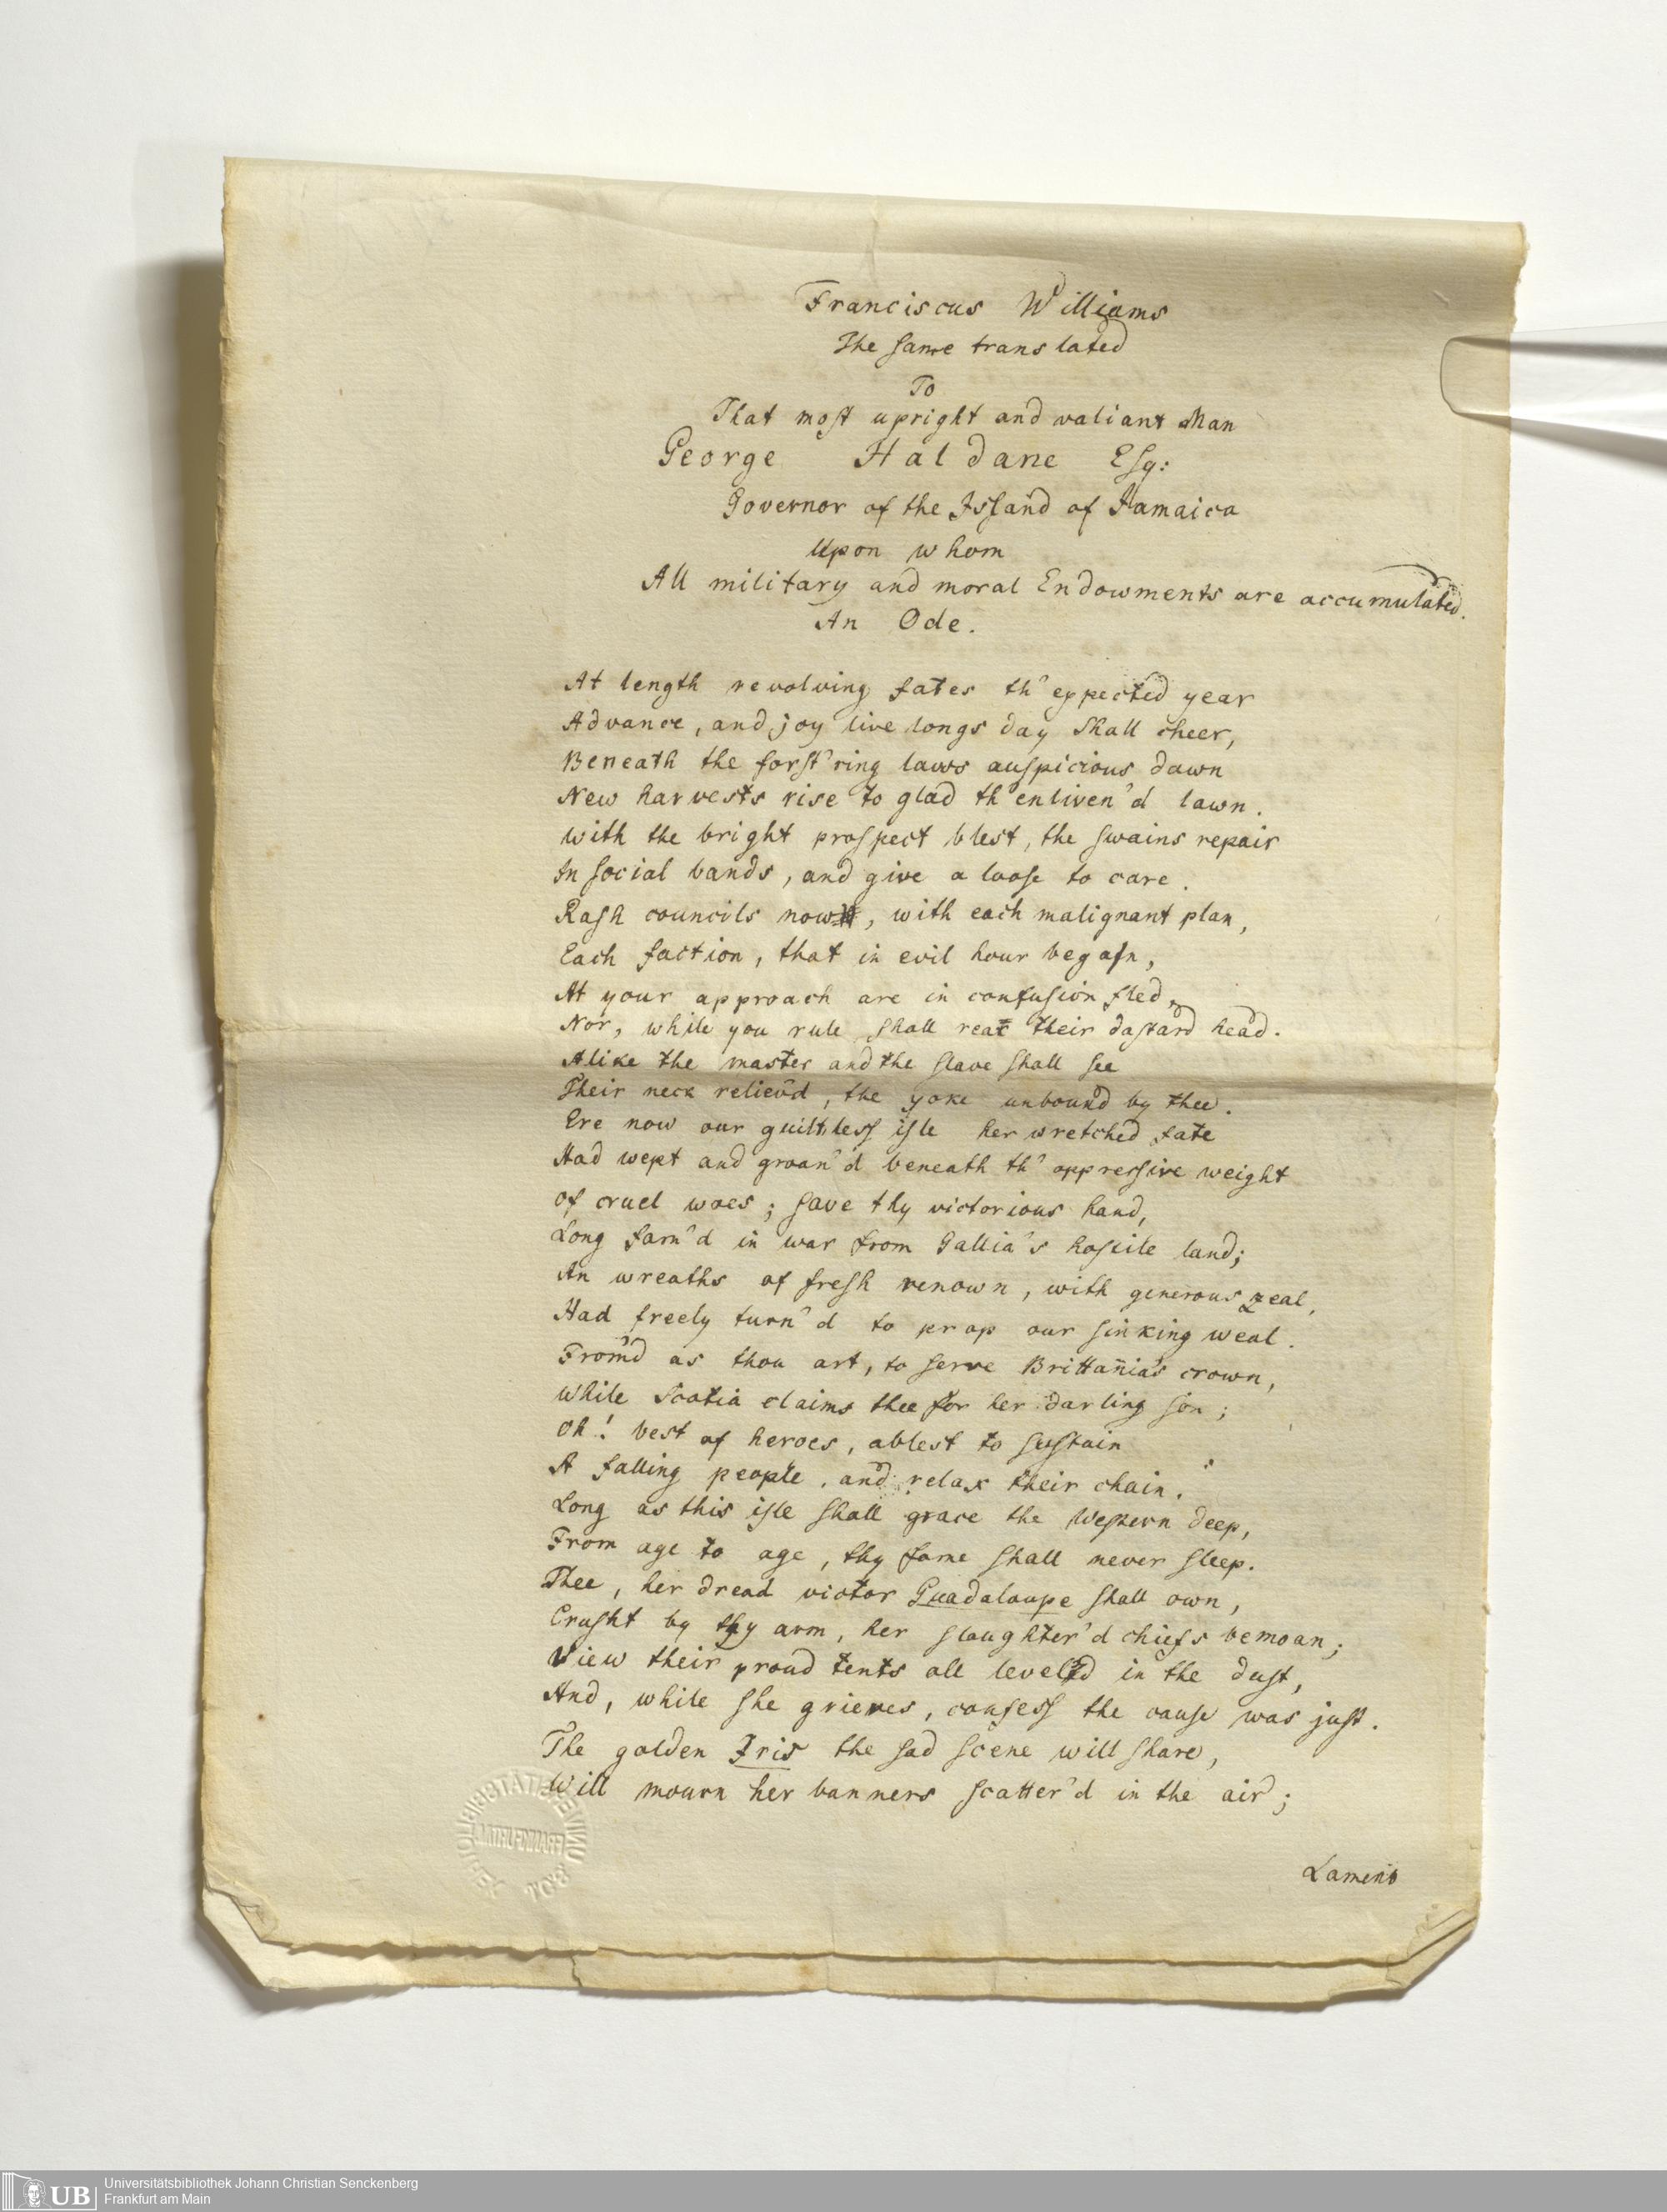 Franciscus Williams
The same translated
To
That most upright and valiant Man
George Haldane Esq:
Governor of the Island of Jamaica
Upon whom
All military and moral Endowments are accumulated.
An Ode.
At length revolving fates th' expected year
Advance, and joy live longs day shall cheer,
Beneath the forst'ring laws auspicious dawn
New harvests rise to glad th' enliven'd lawn.
With the bright prospect blest, the swains repair
In social bands, and give a loose to care.
Rash councils now, with each malignant plan,
Each faction, that in evil hour began,
At your approach are in confusion fled,
Nor, while you rule, shall rear their dastard head.
Alike the master and the slave shall see
Their neck reliev'd, the yoke unbound by thee.
Ere now our guiltless isle her wretched fate
Had wept and groan'd beneath th' oppressive weight
of cruel woes; save thy victorious hand,
Long fam'd in war from Gallia's hostile land;
An wreaths of fresh renown, with generous zeal,
Had freely turn'd to prop our sinking weal.
From'd as thou art, to serve Brittañia's crown,
While Scotia claims thee for her darling son;
Oh! best of heroes, ablest to sustain
A falling people, and relax their chain.
Long as this isle shall grace the Western deep,
From age to age, thy fame shall never sleep.
Thee, her dread victor Guadaloupe shall own,
Crusht by thy arm, her slaughter'd chiefs bemoan;
View their proud tents all level'd in the dust,
And, while she grieves, confess the cause was just.
The golden Iris the sad scene will share,
Will mourn her banners scatter'd in the air;
Lament
UB
Universitätsbibliothek Johann Christian Senckenberg
Frankfurt am Main